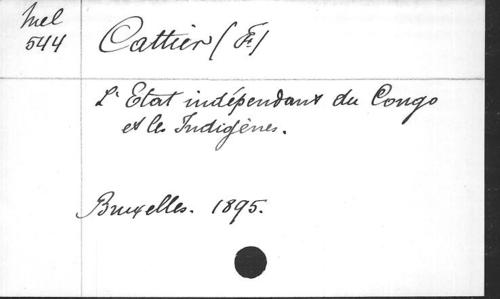 Mel
544
Cattier (F.)
L'Etat indépendant du Congo
et les Indigènes.
Bruxelles. 1895.